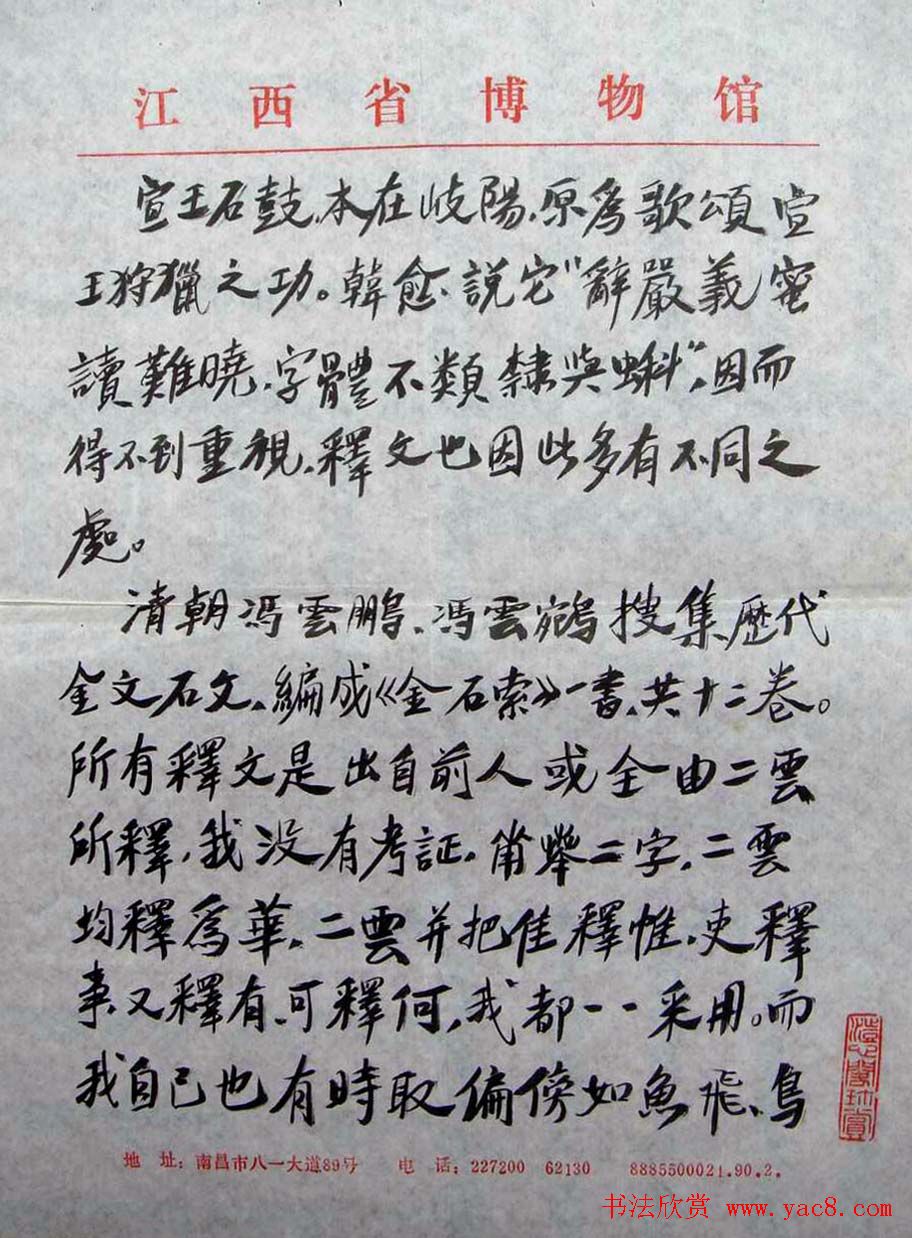 江西省博物馆
宣王石鼓，本在岐陽，原為歌頌宣
王狩獵之功。韓愈說它"辭嚴義蜜
讀難曉，字體不類隸與蝌"，因而
得不到重視，釋文也因此多有不同之
處。
清朝馮雲鵬、馮雲鵷搜集歷代
金文石文，編成《金石索》一書，共十二卷。
所有釋文是出自前人或全由二雲
所釋，我没有考証。 二字，二雲
均釋為華，二雲并把隹釋惟，吏釋
事又釋有，可釋何，我都一一采用。而
我自己也有時取偏傍如魚飛、鳥
地址：南昌市八一大道89号 电话：227200 62130 8885500021.90.2.
书法欣赏 www.yac8.com